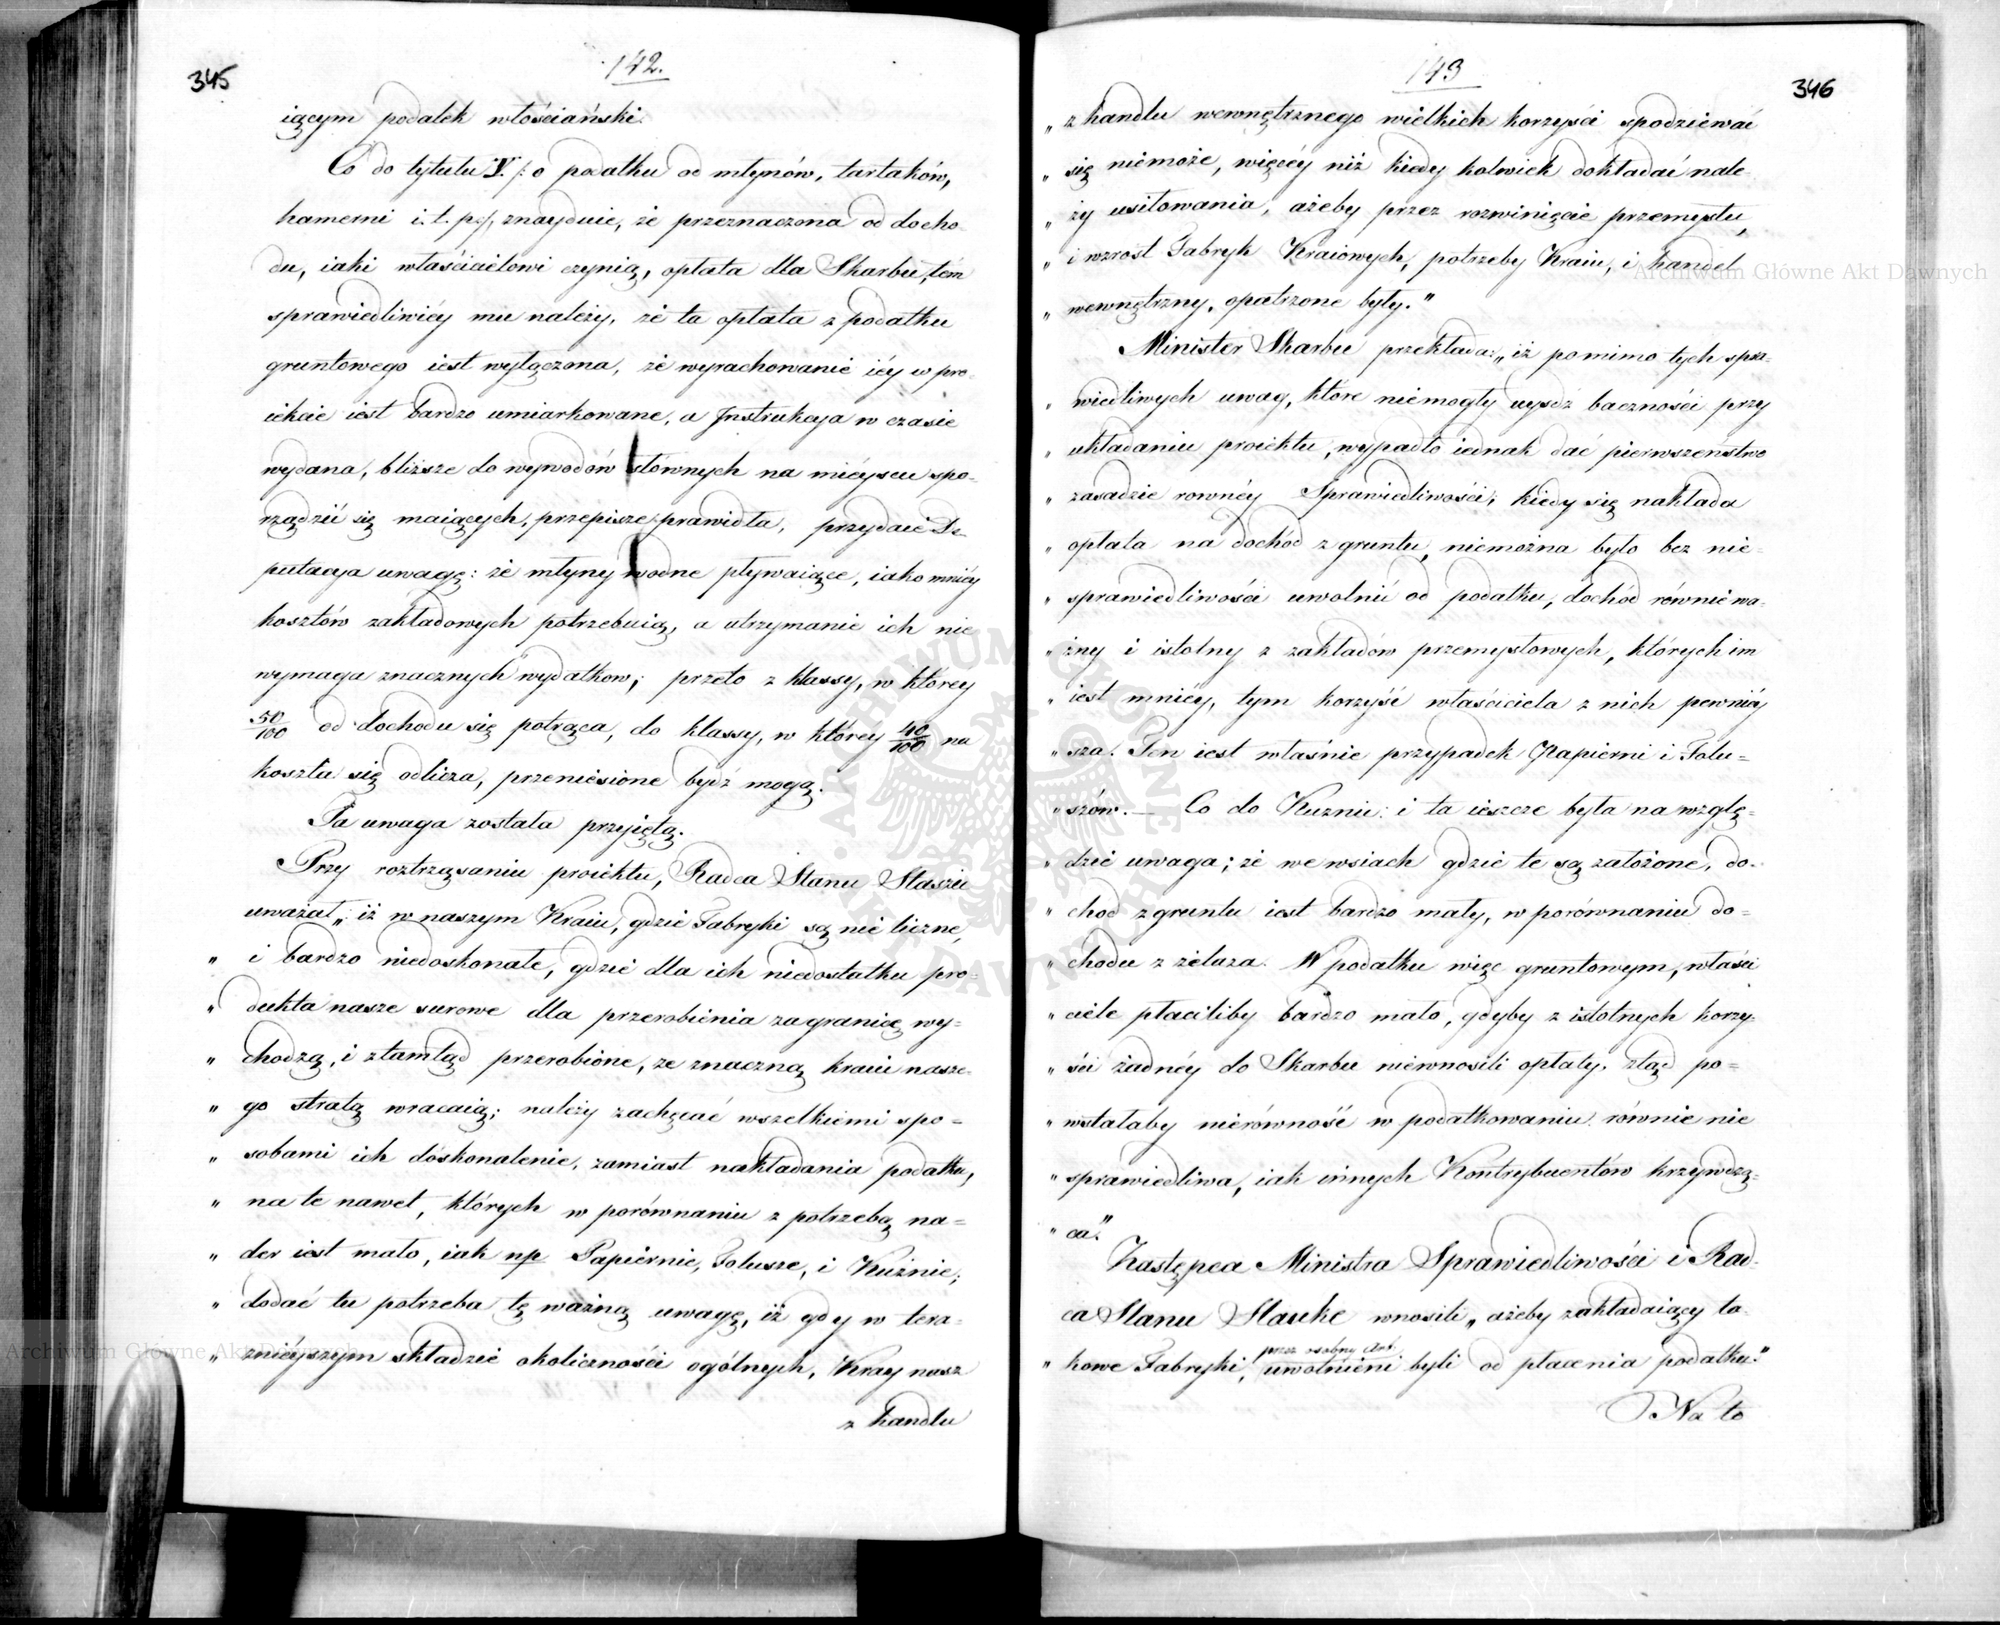 345
142.
iącym podatek włościański.
Co do tytułu IV. /: o podatku od młynów, tartaków,
hamerni i. t. p:/, znayduie, że przeznaczona od docho-
du, iaki właścicielowi czynią, opłata dla Skarbu, tém
sprawiedliwiéy mu należy, że ta opłata z podatku
gruntowego iest wyłączona, że wyrachowanie iéy w pro-
iekcie iest bardzo umiarkowane, a Jnstrukcya w czasie
wydana, bliższe do wywodów słownych na mieyscu spo-
rządzić się maiących, przepisze prawidła, przydaie De-
putacya uwagę: że młyny wodne pływaiące, iako mniéy
kosztów zakładowych potrzebuią, a utrzymanie ich nie
wymaga znacznych wydatkow; przeto z klassy, w któréy
50/100 od dochodu się potrąca, do klassy, w któréy 40/100 na
koszta się odlicza, przeniesione bydź mogą.
Ta uwaga została przyiętą.
Przy roztrząsaniu proiektu, Radca Stanu Staszic
uważał „iż w naszym Kraiu, gdzie Fabryki są nie liczne,
„ i bardzo niedoskonałe, gdzie dla ich niedostatku pro-
„ dukta nasze surowe dla przerobienia zagranicę wy-
„ chodzą, i ztamtąd przerobione, ze znaczną kraiu nasze-
„ go stratą wracaią; należy zachęcać wszelkiemi spo-
„ sobami ich doskonalenie, zamiast nakładania podatku,
„ na te nawet, których w porównaniu z potrzebą na-
„ der iest mało, iak np Papiérnie, Folusze, i Kuźnie;
„ dodać tu potrzeba tę ważną uwagę, iż gdy w tera-
„ znieyszym składzie okoliczności ogólnych, Kray nasz
z handlu
346
143
„ z handlu wewnętrznego wielkich korzyści spodziewać
„ się niemoże, więcéy niż kiedy kolwiek dokładać nale-
„ ży usiłowania, ażeby przez rozwinięcie przemysłu,
„ i wzrost Fabryk Kraiowych, potrzeby Kraiu, i handel
„ wewnętrzny, opatrzone były."
Minister Skarbu przekłada: „iż pomimo tych spra-
„ wiedliwych uwag, które niemogły uyśdź baczności przy
„ układaniu proiektu, wypadło iednak dać pierwszeństwo
„ zasadzie rownéy Sprawiedliwości; kiedy się nakłada
„ opłata na dochód z gruntu, niemożna było bez nie-
„ sprawiedliwości uwolnić od podatku, dochód równie wa-
„ żny i istotny z zakładów przemysłowych, których im
„ iest mniéy, tym korzyść właściciela z nich pewniéy
„ sza. Ten iest właśnie przypadek Papierni i Folu-
„ szów. — Co do Kuźnic: i ta ieszcze była na wzglę-
„ dzie uwaga; że we wsiach gdzie te są założone, do-
„ chod z gruntu iest bardzo mały, w porównaniu do-
„ chodu z żelaza. W podatku więc gruntowym, właści
„ ciele płaciliby bardzo mało, gdyby z istotnych korzy-
„ ści żadnéy do Skarbu niewnosili opłaty, ztąd po-
„ wstałaby nierówność w podatkowaniu równie nie
„ sprawiedliwa, iak innych Kontrybuentów krzywdzą-
„ ca."
Zastępca Ministra Sprawiedliwości i Rad-
ca Stanu Hauke wnosili „ażeby zakładaiący ta-
przez osobny Art.
„ kowe Fabryki, uwolnieni byli od płacenia podatku."
Na to
Archiwum Główne Akt Dawnych
Archiwum Główne Akt Dawnych
ARCHIWUM GŁÓWNE AKT DAWNYCH